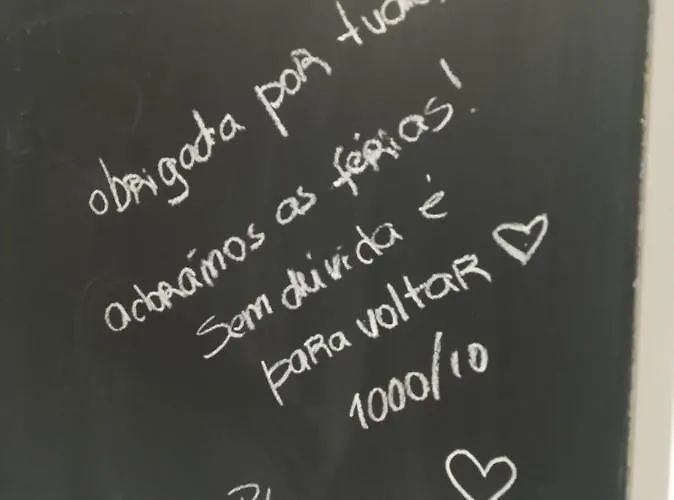 obrigada por tudo,
adorámos as férias!
Sem dúvida é
para voltar ♡
1000/10
♡